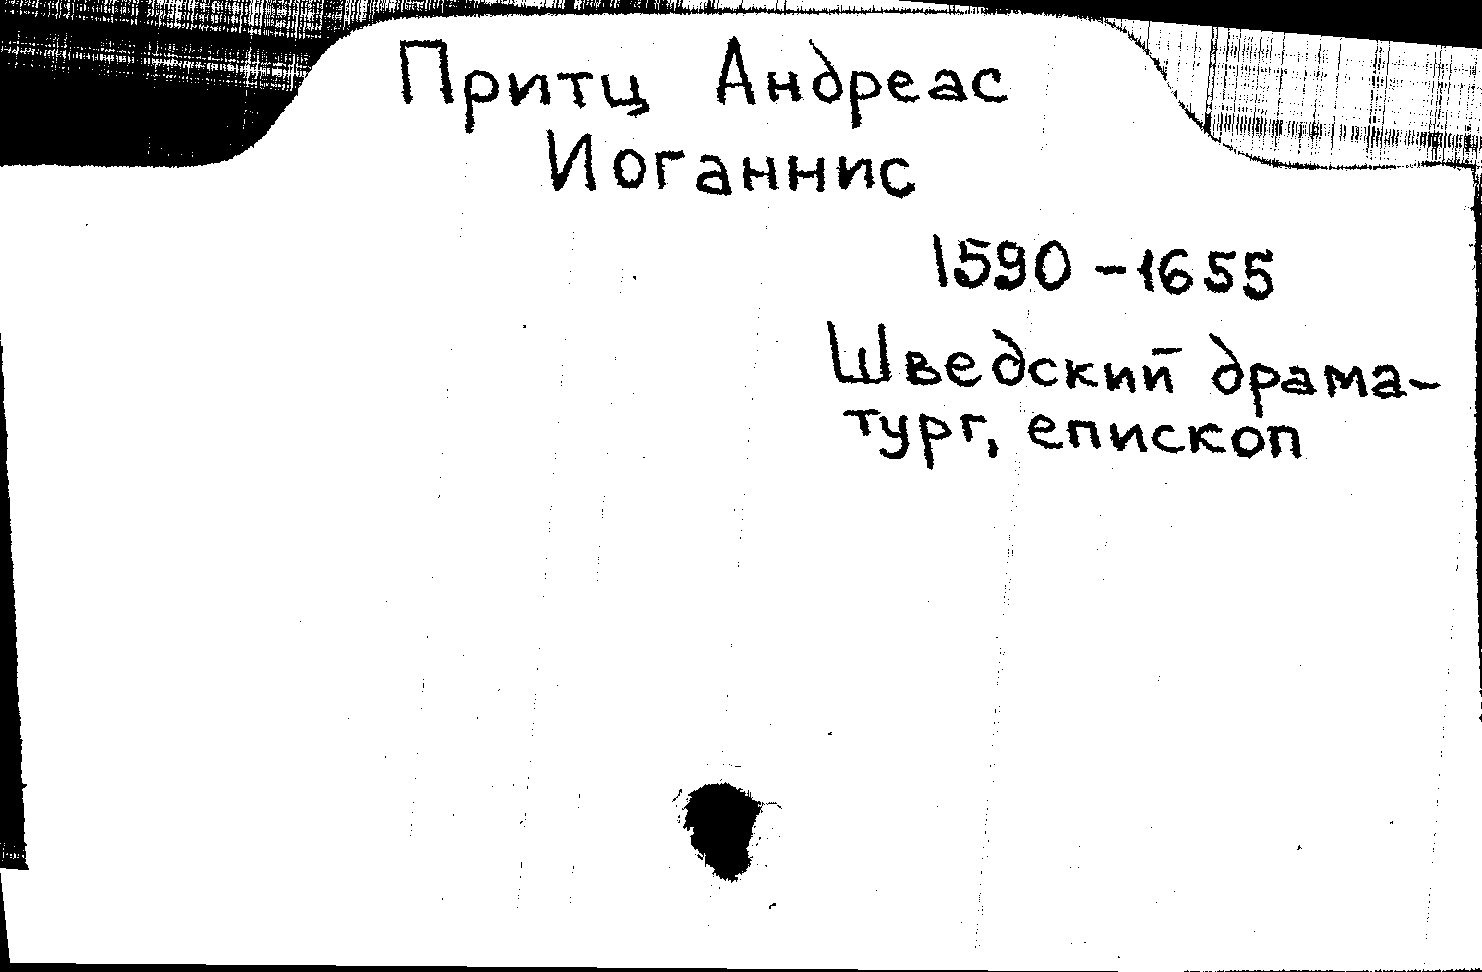 Притц Андреас
Иоганнис
1590 - 1655
Шведский драма-
тург, епископ